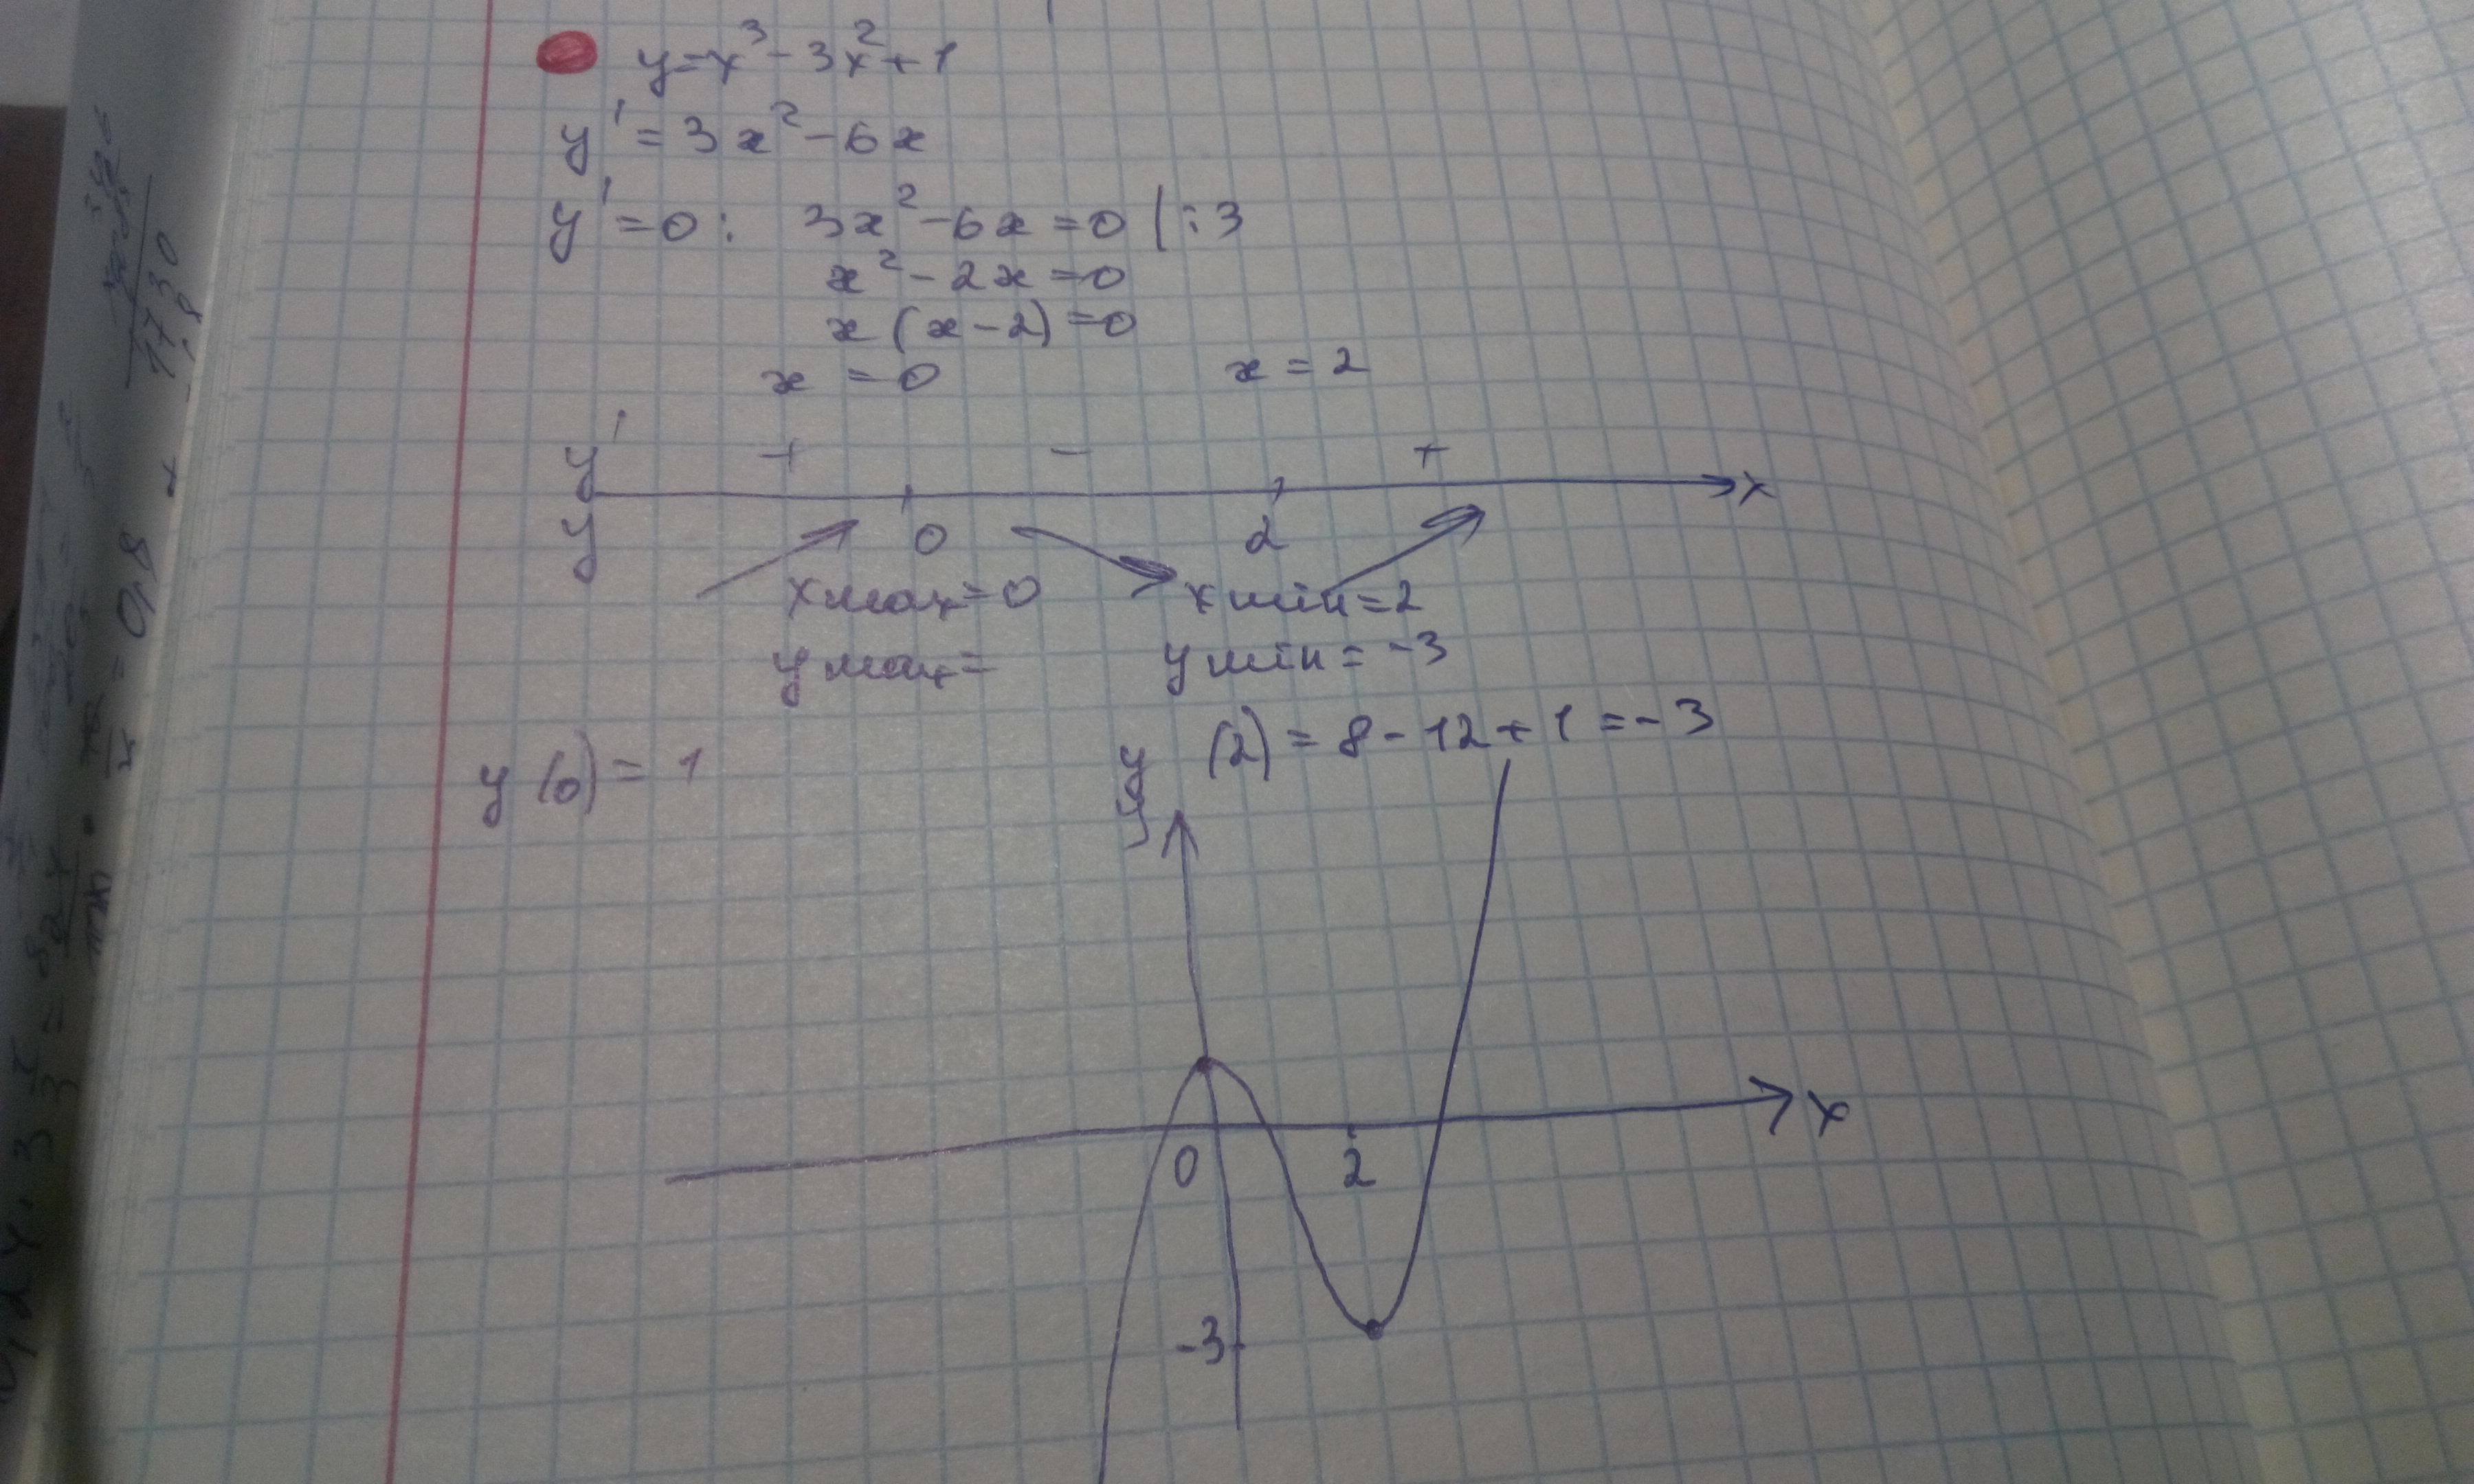 y=x³-3x²+1
y'=3x²-6x
y'=0: 3x²-6x=0 |:3
x²-2x=0
x(x-2)=0
x=0 x=2
y' + - + x
y 0 2
xmax=0 xmin=2
ymax= ymin=-3
y(0)=1 y(2)=8-12+1=-3
y
x
0 2
-3